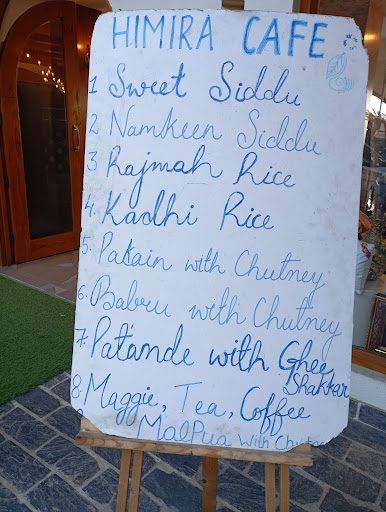 HIMIRA CAFE
1 Sweet Siddu
2 Namkeen Siddu
3 Rajmah Rice
4. Kadhi Rice
5. Patain with Chutney
6. Babru with Chutney
7. Patande with Ghee
Shakkar
8. Maggie, Tea, Coffee
MalPua with